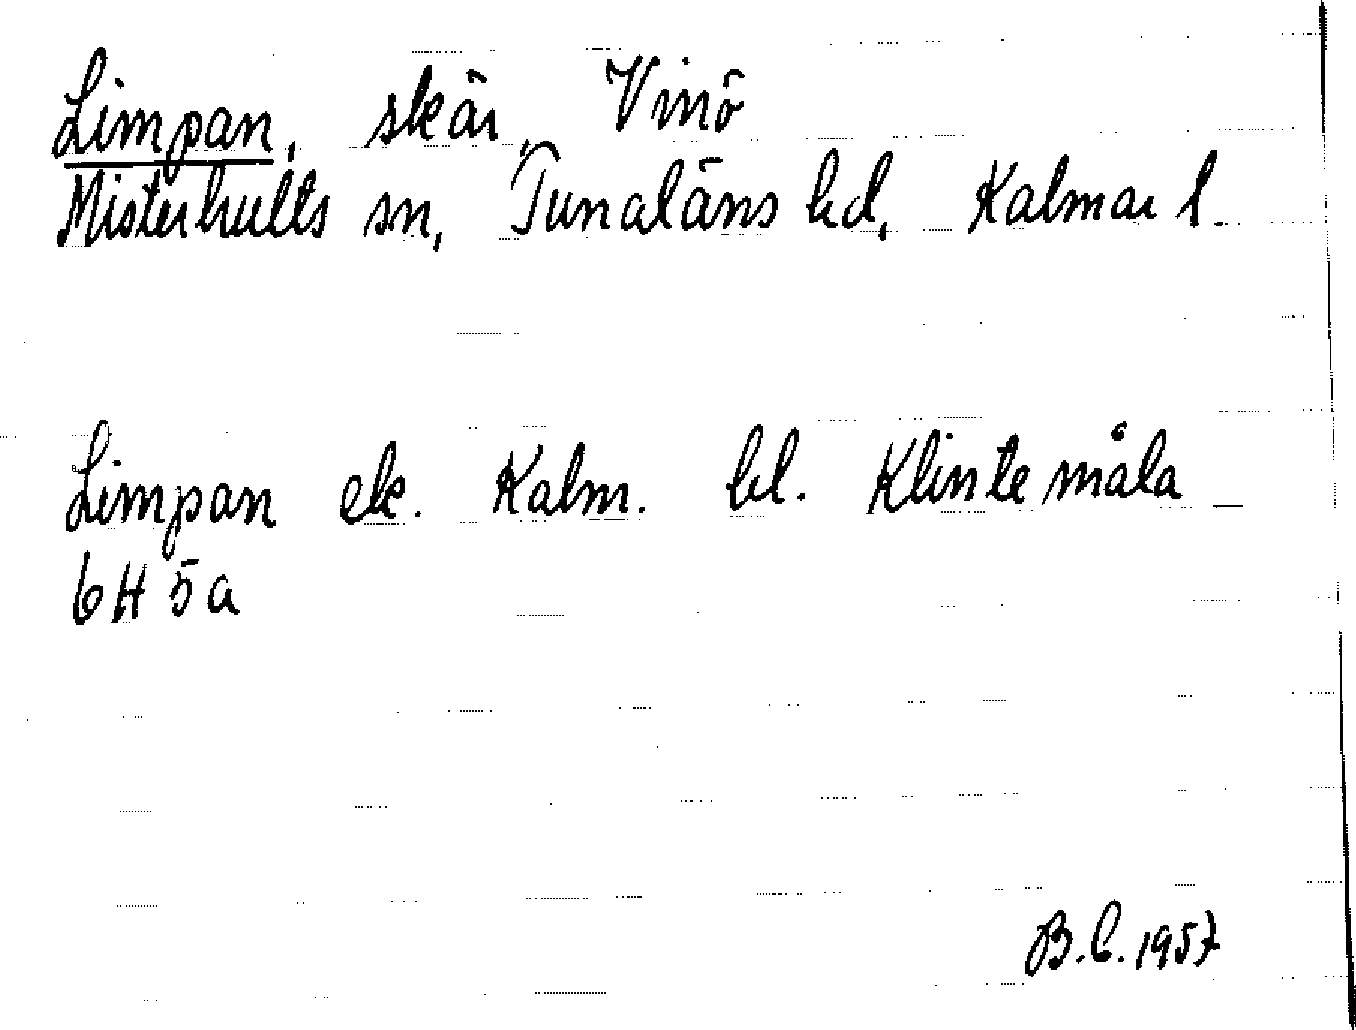 Limpan, skär, Vinö
Misterhults sn, Tunaläns hd, Kalmar l.
Limpan ek. Kalm. bl. Klintemåla
6H 5a
B.C. 1957